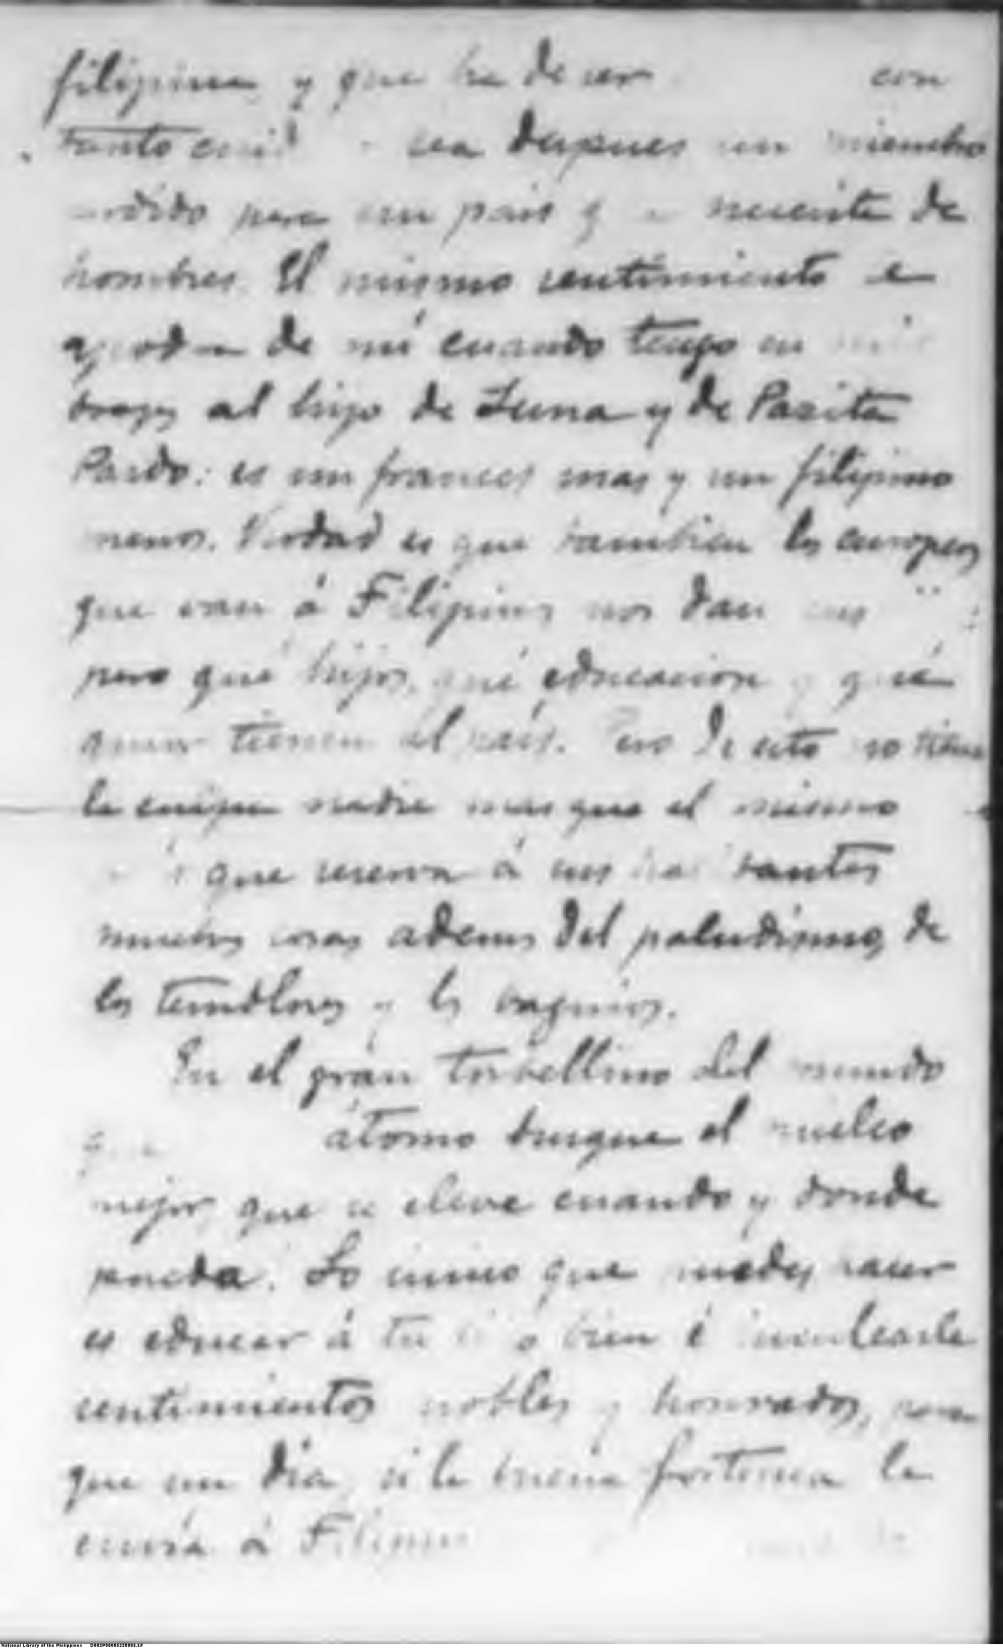 filipina, y que ha de ser con
tanto cuid sea despues un miembro
perdido para un pais q necesita de
hombres. El mismo sentimiento se
apodera de mí cuando tengo en mis
brazos al hijo de Luna y de Pazita
Pardo: es un frances mas y un filipino
menos. Verdad es que tambien los europeos
que van á Filipinas nos dan sus
pero qué hijos, qué educacion y qué
amor tienen al país. Pero de esto no tiene
la culpa nadie mas que el mismo
que reserva á sus habitantes
muchas cosas ademas del paludismo, de
los temblores y los baguios.
En el gran torbellino del mundo
que átomo busque el nucleo
mejor, que se eleve cuando y donde
pueda. Lo unico que puedes hacer
es educar á tu bien é inculcarle
sentimientos nobles y honrados, para
que un dia, si la buena fortuna le
envía á Filipinas
National Library of the Philippines